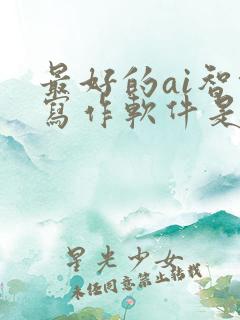 最好的ai智
寫作軟件是
星光少女
未经同意禁止转载